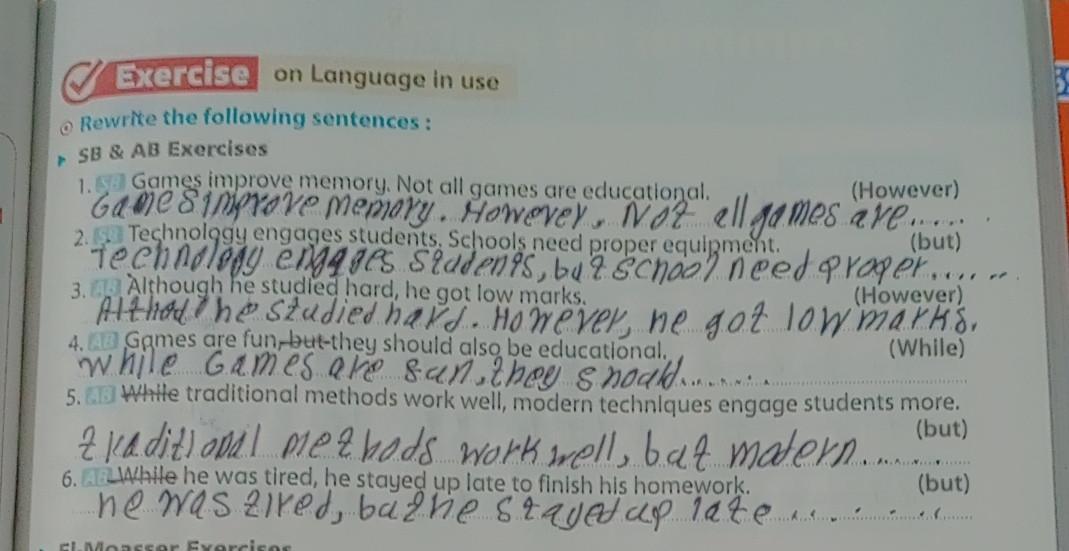 Exercise on Language in use
Rewrite the following sentences :
SB & AB Exercises
1. SB Games improve memory. Not all games are educational. (However)
Games improve memory. However, Not all games are......
2. SB Technology engages students. Schools need proper equipment. (but)
Technology engages students, but school need proper.......
3. AB Although he studied hard, he got low marks. (However)
he studied hard. However, he got low marks.
4. AB Games are fun, but they should also be educational. (While)
While Games are fun, they should.......
5. AB While traditional methods work well, modern techniques engage students more.
(but)
traditional methods work well, but modern.......
6. AB While he was tired, he stayed up late to finish his homework. (but)
he was tired, but he stayed up late.......
El-Moasser Exercises